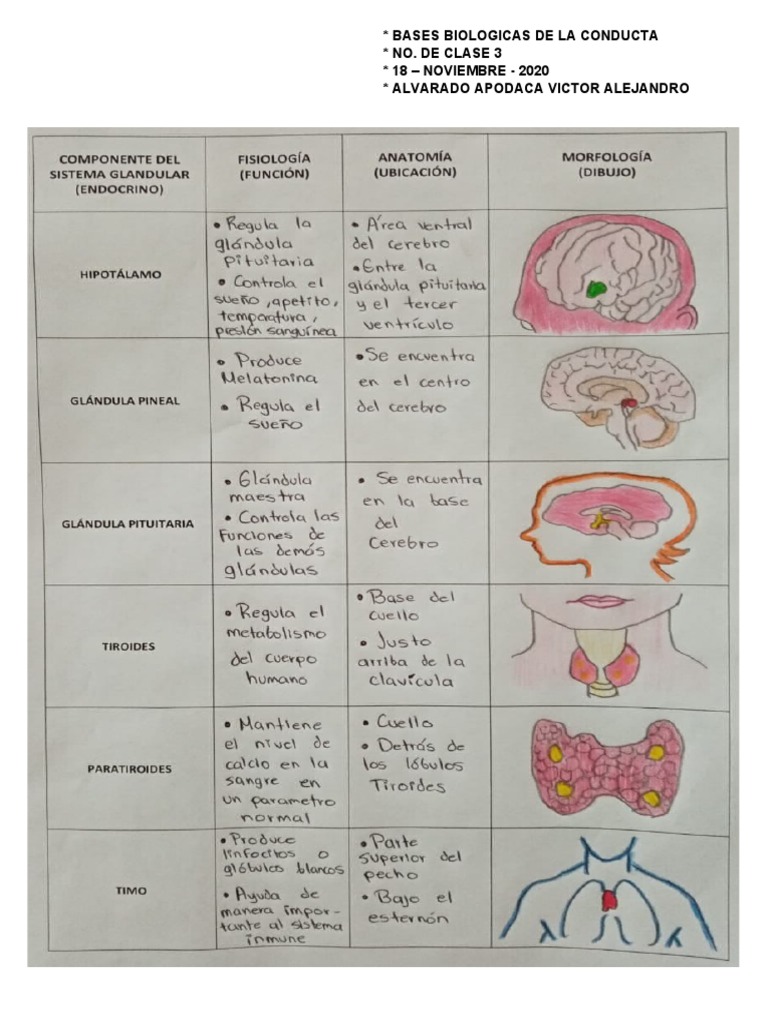 * BASES BIOLOGICAS DE LA CONDUCTA
* NO. DE CLASE 3
* 18 – NOVIEMBRE - 2020
* ALVARADO APODACA VICTOR ALEJANDRO
COMPONENTE DEL
SISTEMA GLANDULAR
(ENDOCRINO)
FISIOLOGÍA
(FUNCIÓN)
ANATOMÍA
(UBICACIÓN)
MORFOLOGÍA
(DIBUJO)
HIPOTÁLAMO
• Regula la
glándula
pituitaria
• Controla el
sueño, apetito,
temperatura,
presión sanguínea
• Área ventral
del cerebro
• Entre la
glándula pituitaria
y el tercer
ventrículo
GLÁNDULA PINEAL
• Produce
Melatonina
• Regula el
sueño
• Se encuentra
en el centro
del cerebro
GLÁNDULA PITUITARIA
• Glándula
maestra
• Controla las
Funciones de
las demás
glándulas
• Se encuentra
en la base
del
Cerebro
TIROIDES
• Regula el
metabolismo
del cuerpo
humano
• Base del
cuello
• Justo
arriba de la
clavícula
PARATIROIDES
• Mantiene
el nivel de
calcio en la
sangre en
un parametro
normal
• Cuello
• Detrás de
los lóbulos
Tiroides
TIMO
• Produce
linfocitos o
glóbulos blancos
• Ayuda de
manera impor-
tante al sistema
inmune
• Parte
superior del
pecho
• Bajo el
esternón